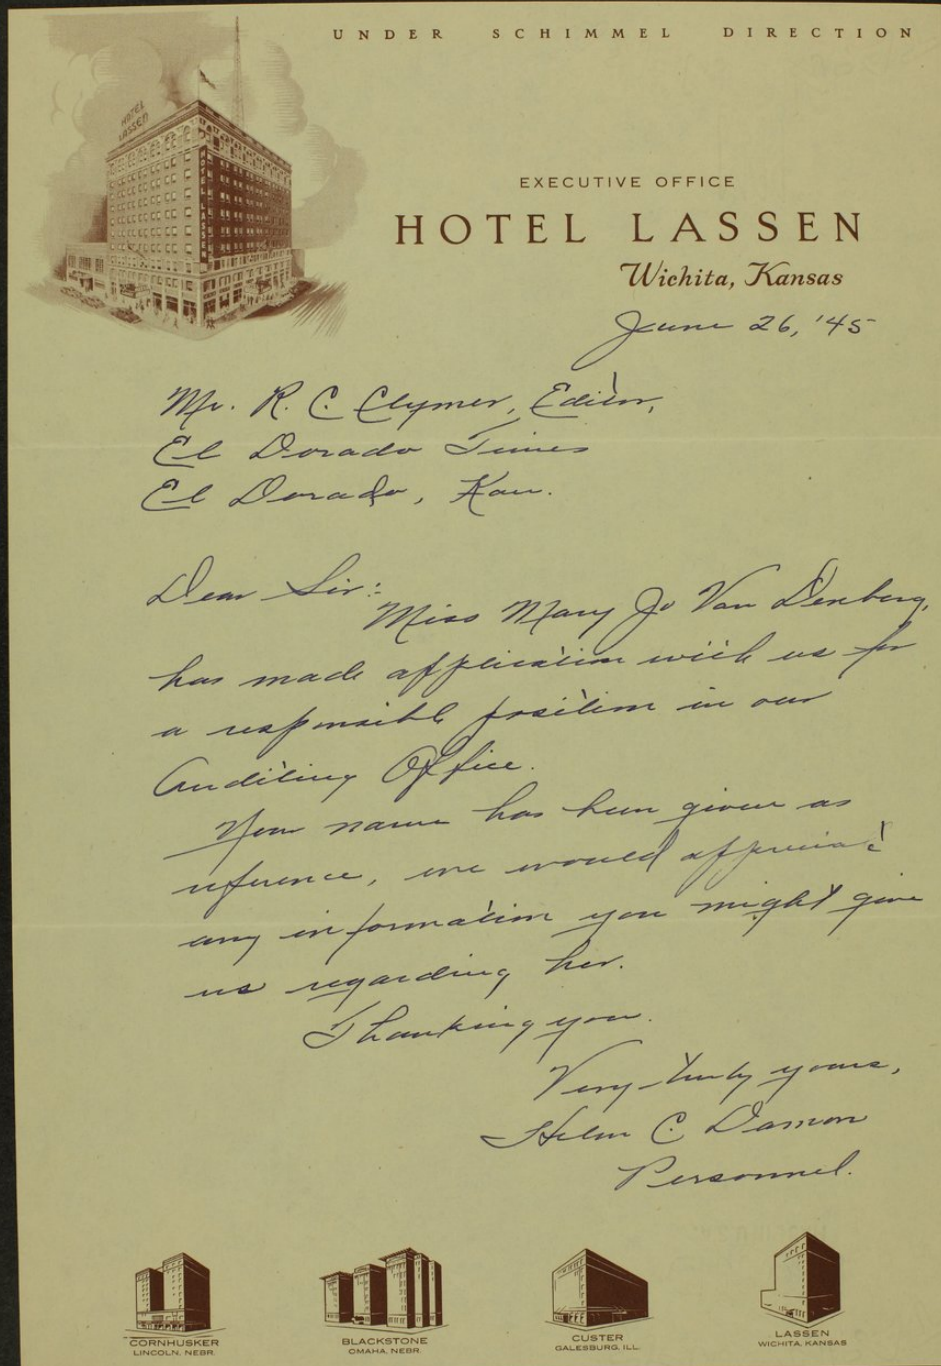 UNDER SCHIMMEL DIRECTION
HOTEL
LASSEN
HOTEL LASSEN
EXECUTIVE OFFICE
HOTEL LASSEN
Wichita, Kansas
June 26, '45
Mr. R. C. Clymer, Editor,
El Dorado Times
El Dorado, Kan.
Dear Sir:
Miss Mary Jo Van Denberg,
has made application with us for
a responsible position in our
Auditing Office.
Your name has been given as
reference, we would appreciate
any information you might give
us regarding her.
Thanking you.
Very truly yours,
Helen C. Damon
Personnel.
CORNHUSKER
LINCOLN, NEBR.
BLACKSTONE
OMAHA, NEBR.
CUSTER
GALESBURG, ILL.
LASSEN
WICHITA, KANSAS